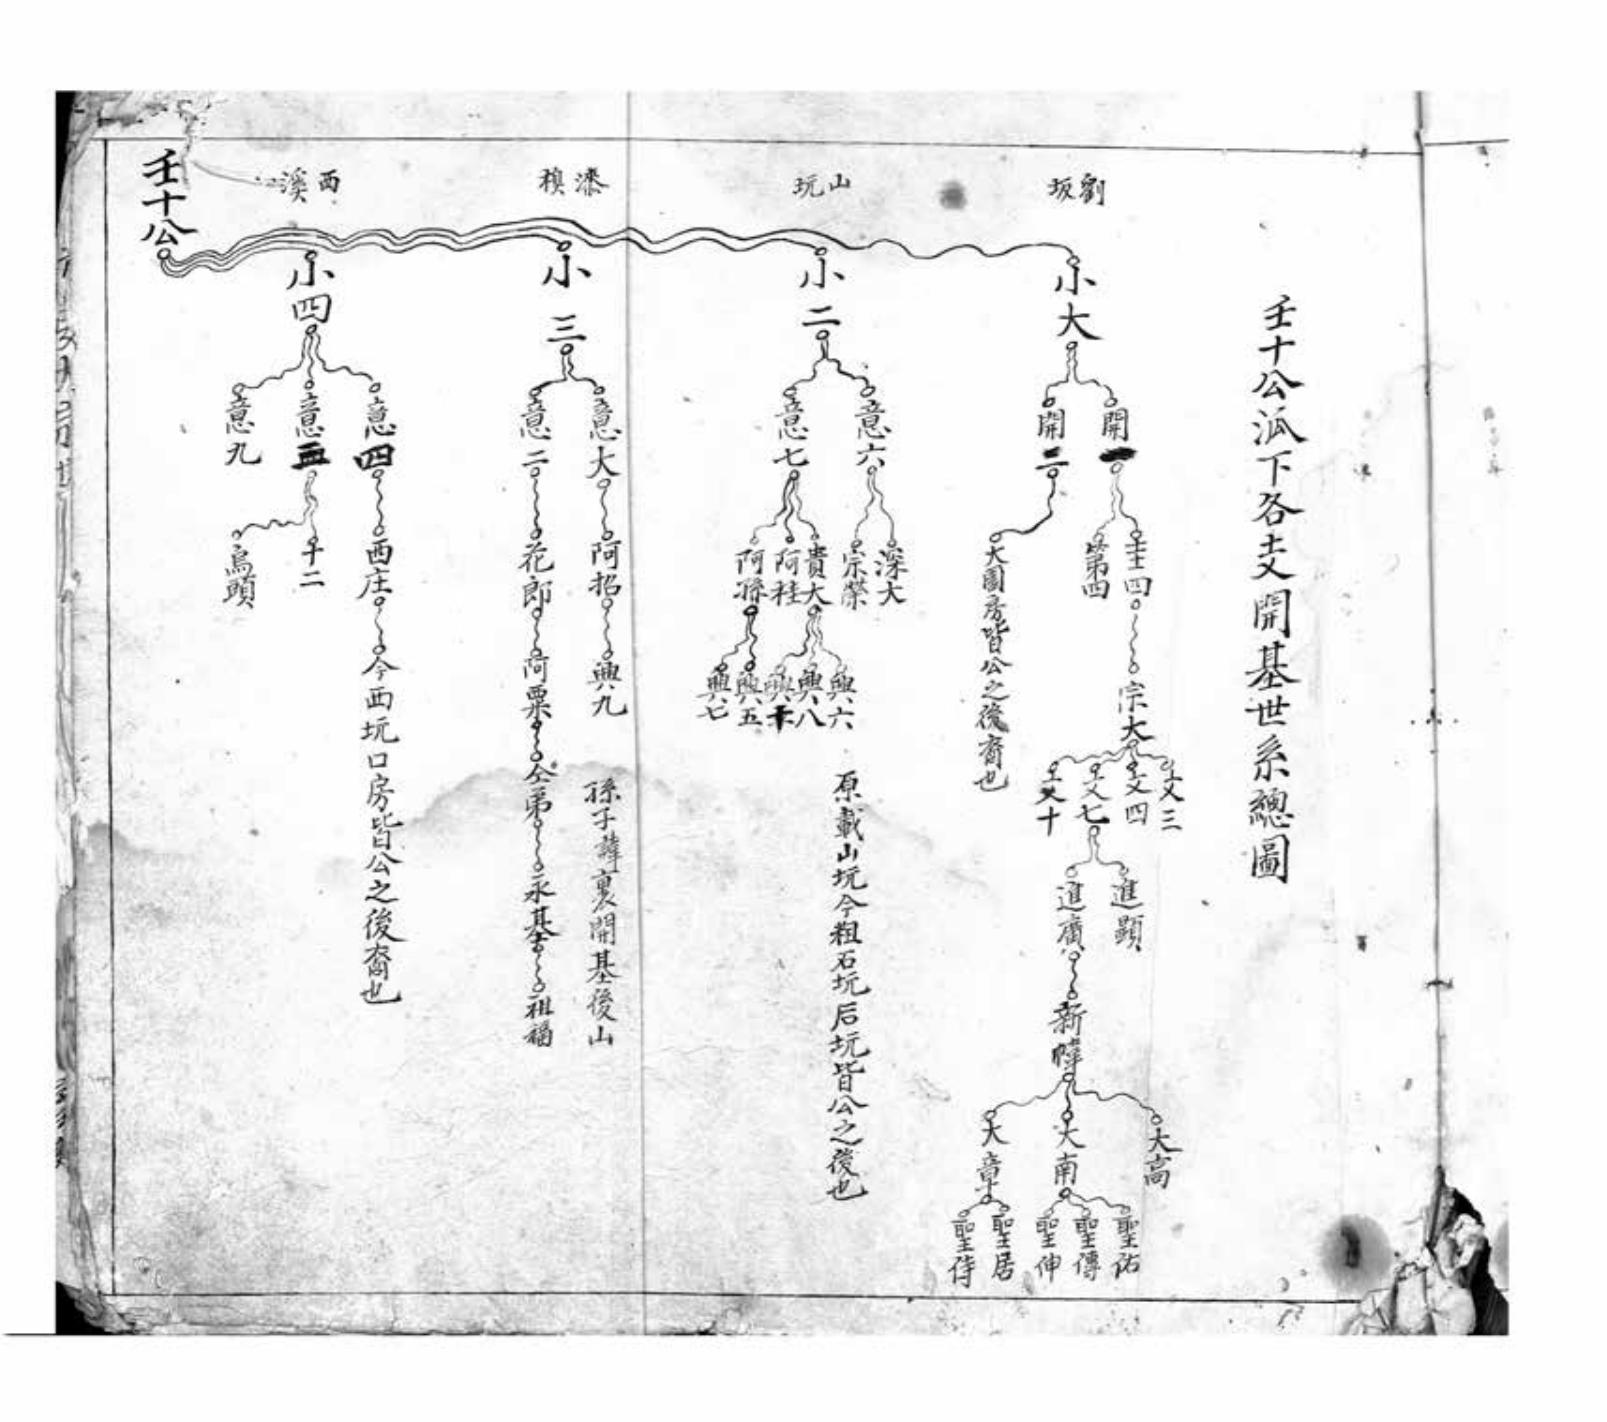 壬十公派下各支開基世系總圖
劉坂
山坑
漆模
西溪
壬十公
小大
開一
開二
壬四
第四
大園房皆公之後裔也
宗大
文三
文四
文七
文十
進顯
進廣
新幃
大高
大南
大章
聖佑
聖傳
聖伸
聖居
聖侍
小二
意六
意七
深大
宗榮
貴大
阿桂
阿孫
興六
興八
興五
興七
原載山坑今粗石坑后坑皆公之後也
小三
意大
意二
阿招
興九
孫子諱裏開基後山
花郎
阿粟
仝弟
永基
祖福
小四
意四
意五
意九
西庄
今西坑口房皆公之後裔也
十二
烏頭